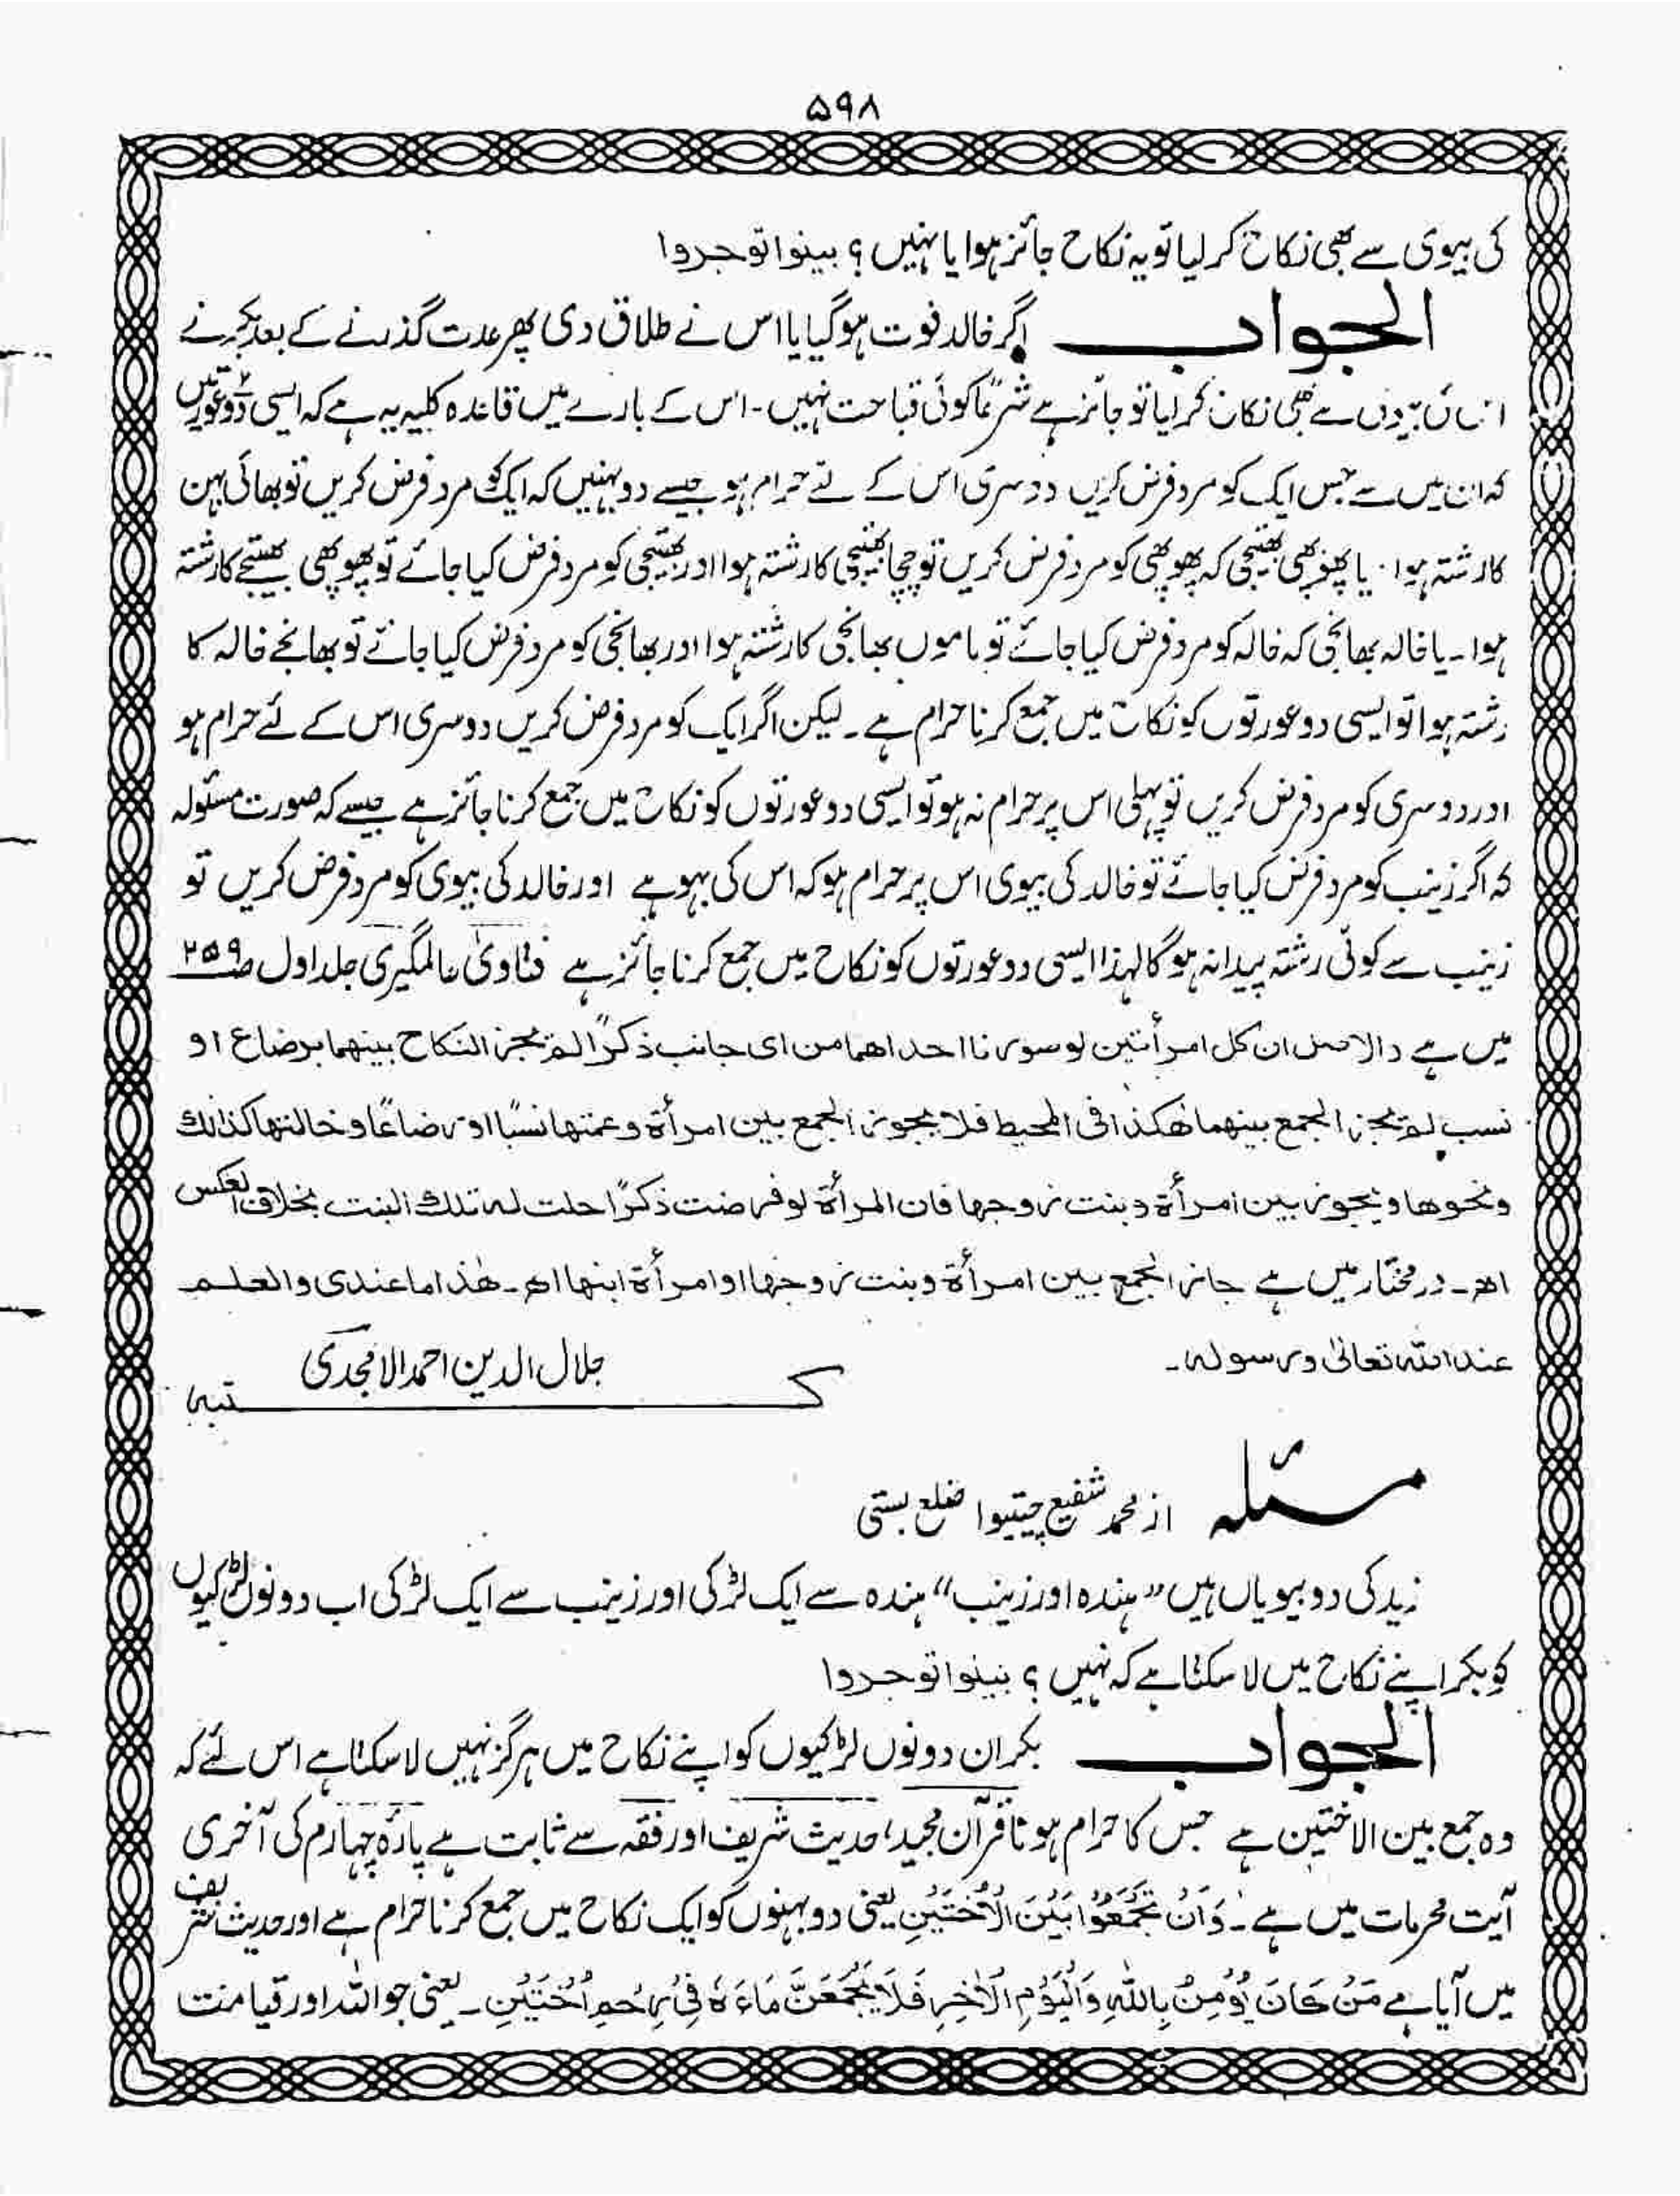 ۵۹۸
کی بیوی سے بھی نکاح کرلیا تو یہ نکاح جائز ہوا یا نہیں ؟ بینوا توجروا
الجواب اگر خالد فوت ہوگیا یا اس نے طلاق دی پھر عدت گذرنے کے بعد بکر نے
سے بھی نکاح کرلیا تو جائز ہے شرعًا کوئی قباحت نہیں ۔ اس کے بارے میں قاعدہ کلیہ یہ ہے کہ ایسی دو عورتیں
کہ ان میں سے جس ایک کو مرد فرض کریں دوسری اس کے لئے حرام ہو جیسے دو بہنیں کہ ایک کو مرد فرض کریں تو بھائی بہن
کا رشتہ ہوا ۔ یا پھوپھی بھتیجی کہ پھوپھی کو مرد فرض کریں تو چچا بھتیجی کا رشتہ ہوا اور بھتیجی کو مرد فرض کیا جائے تو پھوپھی بھتیجے کا رشتہ
ہوا ۔ یا خالہ بھانجی کہ خالہ کو مرد فرض کیا جائے تو ماموں بھانجی کا رشتہ ہوا اور بھانجی کو مرد فرض کیا جائے تو بھانجے خالہ کا
رشتہ ہوا تو ایسی دو عورتوں کو نکاح میں جمع کرنا حرام ہے ۔ لیکن اگر ایک کو مرد فرض کریں دوسری اس کے لئے حرام ہو
اور دوسری کو مرد فرض کریں تو پہلی اس پر حرام نہ ہو تو ایسی دو عورتوں کو نکاح میں جمع کرنا جائز ہے جیسے کہ صورت مسئولہ
کہ اگر زینب کو مرد فرض کیا جائے تو خالد کی بیوی اس پر حرام ہو کہ اس کی بہو ہے اور خالد کی بیوی کو مرد فرض کریں تو
زینب سے کوئی رشتہ پیدا نہ ہوگا لہذا ایسی دو عورتوں کو نکاح میں جمع کرنا جائز ہے فتاویٰ عالمگیری جلد اول ص۲۵۹
میں ہے والاصل ان کل امرأتین لو صورنا احداھما من ای جانب ذکرًا لم یجز النکاح بینھما برضاع او
نسب لم یجز الجمع بینھما ھکذا فی المحیط فلا یجوز الجمع بین امرأة وعمتھا نسبًا او رضاعًا وخالتھا کذالك
ونحوھا ویجوز بین امرأة وبنت زوجھا فان المرأة لو فرضت ذکرًا حلت لہ تلك البنت بخلاف العکس
اھ ۔ درمختار میں ہے جاز الجمع بین امرأة وبنت زوجھا او امرأة ابنھا اھ ۔ ھٰذا ما عندی والعلم
عند اللہ تعالیٰ ورسولہ ۔
کتبہ جلال الدین احمد الامجدی
مسئلہ از محمد شفیع چیتیوا ضلع بستی
زید کی دو بیویاں ہیں ”ہندہ اور زینب“ ہندہ سے ایک لڑکی اور زینب سے ایک لڑکی اب دونوں لڑکیوں
کو بکر اپنے نکاح میں لا سکتا ہے کہ نہیں ؟ بینوا توجروا
الجواب بکر ان دونوں لڑکیوں کو اپنے نکاح میں ہرگز نہیں لا سکتا ہے اس لئے کہ
وہ جمع بین الاختین ہے جس کا حرام ہونا قرآن مجید، حدیث شریف اور فقہ سے ثابت ہے پارہ چہارم کی آخری
آیت محرمات میں ہے ۔ وَاَنْ تَجْمَعُوْا بَیْنَ الْاُخْتَیْنِ یعنی دو بہنوں کو ایک نکاح میں جمع کرنا حرام ہے اور حدیث شریف
میں آیا ہے مَنْ كَانَ یُؤْمِنُ بِاللّٰهِ وَالْیَوْمِ الْاٰخِرِ فَلَا یَجْمَعَنَّ مَاءَهٗ فِیْ رِحْمِ اُخْتَیْنِ ۔ یعنی جو اللہ اور قیامت